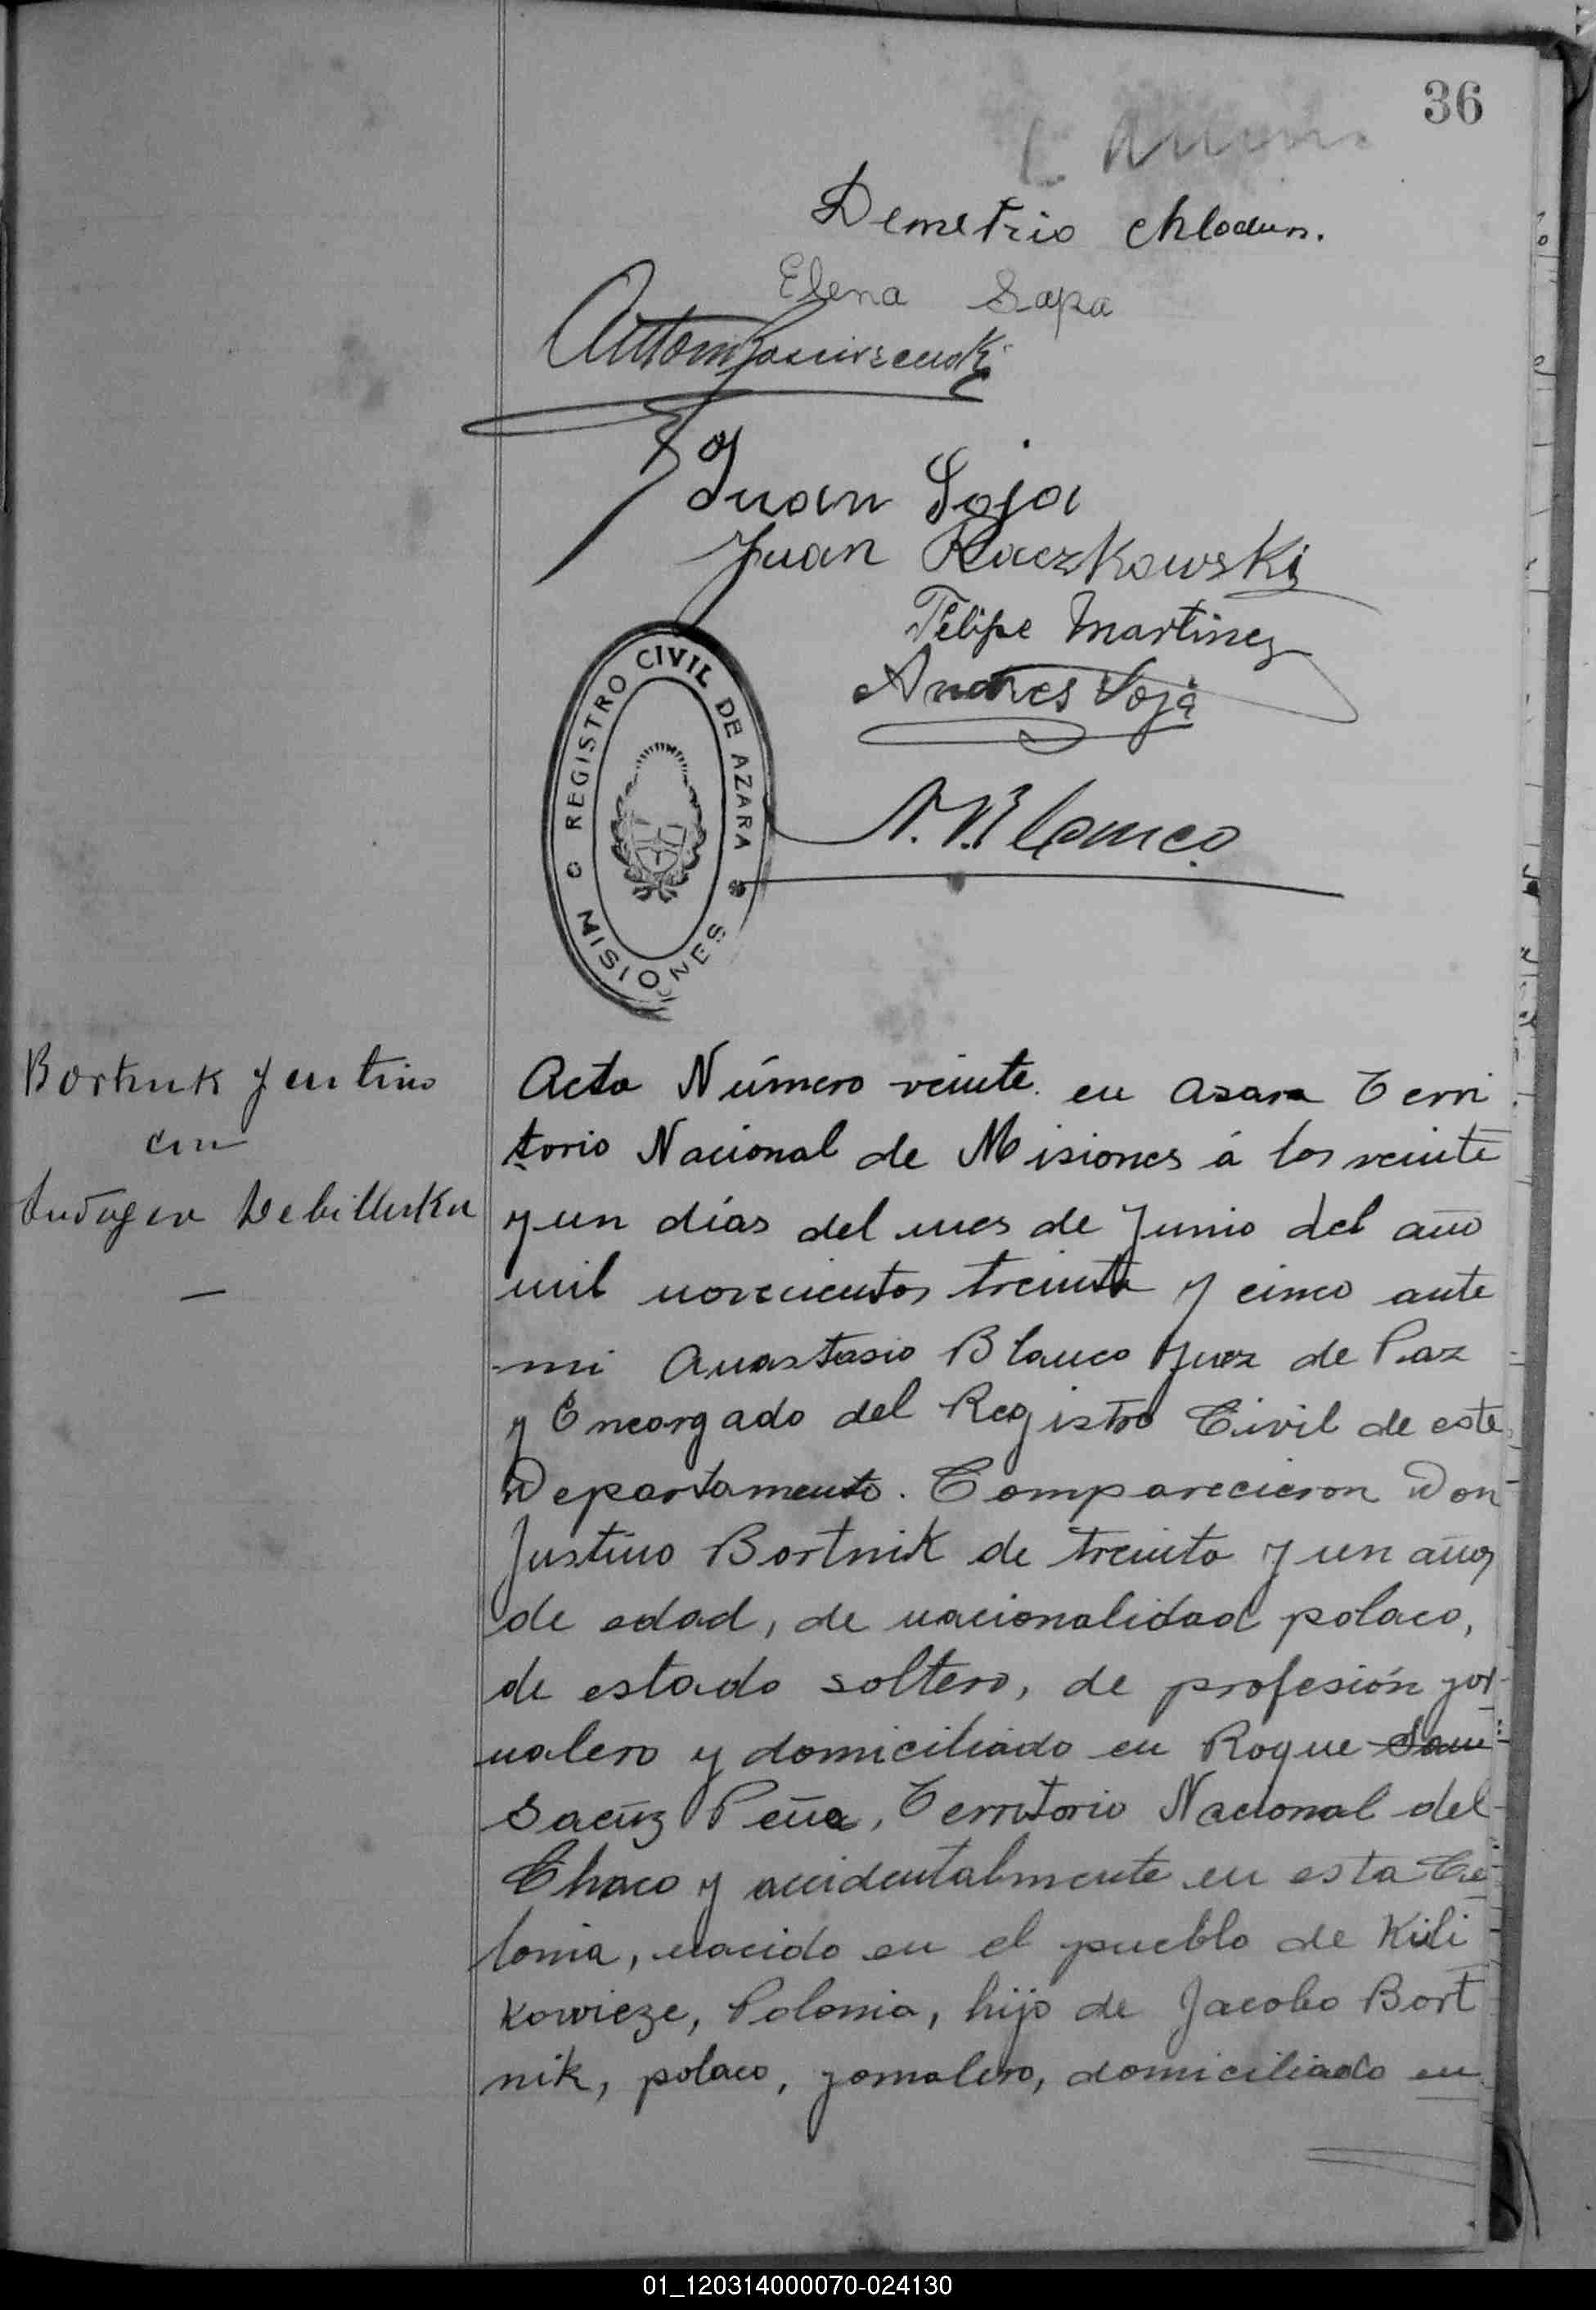 36
Demetrio
Elena Sapa
Juan Soja
Juan Raczkowski
Felipe Martinez
Andres Soja
A. Blanco
REGISTRO CIVIL DE AZARA
MISIONES
Bortnik Justino
con
Acta Número veinte. en Azara Terri
torio Nacional de Misiones á los veinte
y un días del mes de Junio del año
mil novecientos treinta y cinco ante
mi Anastasio Blanco Juez de Paz
y Encargado del Registro Civil de este
Departamento. Comparecieron Don
Justino Bortnik de treinta y un años
de edad, de nacionalidad polaco,
de estado soltero, de profesión jor
nalero y domiciliado en Roque
Saenz Peña, Territorio Nacional del
Chaco y accidentalmente en esta Co
lonia, nacido en el pueblo de Kili
kowieze, Polonia, hijo de Jacobo Bort
nik, polaco, jornalero, domiciliado en
01_120314000070-024130